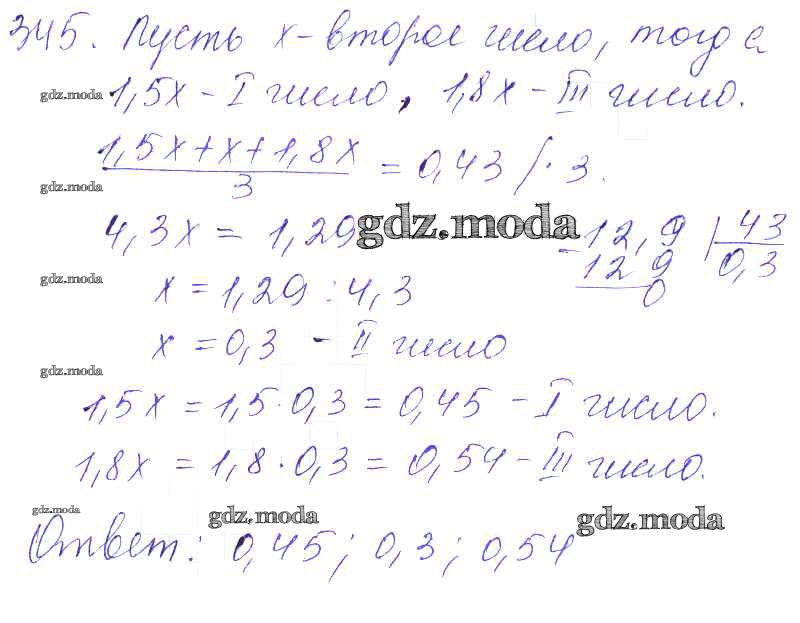 345. Пусть x - второе число, тогда
gdz.moda 1,5x - I число, 1,8x - III число.
1,5x + x + 1,8x
gdz.moda 3 = 0,43 / · 3.
4,3x = 1,29 gdz.moda - 12,9 | 43
129 0,3
0
gdz.moda x = 1,29 : 4,3
x = 0,3 - II число
gdz.moda
1,5x = 1,5 · 0,3 = 0,45 - I число.
1,8x = 1,8 · 0,3 = 0,54 - III число.
gdz.moda gdz.moda gdz.moda
Ответ: 0,45; 0,3; 0,54